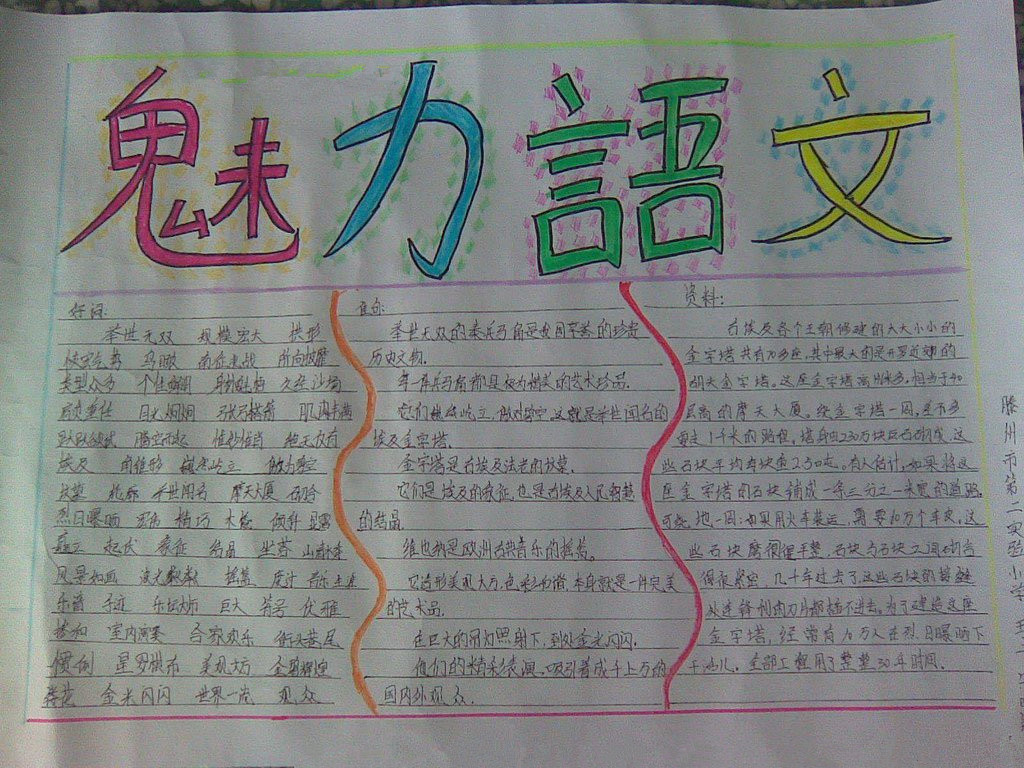 魅力語文
好词:
举世无双 规模宏大 拱形
南征北战 所向披靡
类型众多 个性鲜明 身披铠甲 久经沙场
昂首挺胸 目光炯炯 肌肉丰满
跃跃欲试 腾空而起 绝无仅有
埃及 角锥形 巍然屹立 傲对碧空
坟墓 轮廓 举世闻名 摩天大厦 石砌
烈日曝晒 精巧 倾斜
矗立 起伏 象征 结晶 坐落
风景如画 波光粼粼 摇篮 音乐之是
乐谱 手迹 乐坛大师 巨大 著名 优雅
室内演奏 合家欢乐 街头巷尾
惯例 星罗棋布 美观大方 金碧辉煌
金光闪闪 世界一流 观众
佳句:
举世无双的秦兵马俑是我国享誉的珍贵
历史文物。
每一件兵马俑都是极为精美的艺术珍品。
它们巍然屹立,傲对碧空,这就是举世闻名的
埃及金字塔。
金字塔是古埃及法老的坟墓。
它们是埃及的象征,也是古埃及人民智慧
的结晶。
维也纳是欧洲古典音乐的摇篮。
它造形美观大方,色彩和谐,本身就是一件完美
的艺术品。
在巨大的吊灯照射下,到处金光闪闪。
他们的精彩表演,吸引着成千上万的
国内外观众。
资料:
古埃及各个王朝修建的大大小小的
金字塔共有70多座,其中最大的是开罗近郊的
胡夫金字塔。这座金字塔高146米多,相当于40
层高的摩天大厦。绕金字塔一周,差不多
要走1千米的路程,塔身由230万块巨石砌成,这
些石块平均每块重2.50吨。有人估计,如果将这
座金字塔的石块铺成一条三分之一米宽的道路,
可绕地一周;如果用火车装运,需要60万个车皮。这
些石块磨得很平整,石块与石块之间砌合
得很紧密,几千年过去了,这些石块的接缝
处连锋利的刀片都插不进去。为了建造这座
金字塔,经常有10万人在烈日曝晒下
干活儿。全部工程用了整整30年时间。
滕州市第二实验小学